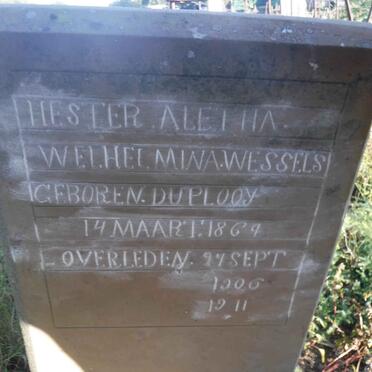 HESTER ALETHA
WELHELMINA.WESSELS
GEBOREN.DUPLOOY
14 MAART.1864
OVERLEDEN. SEPT
1906
1911